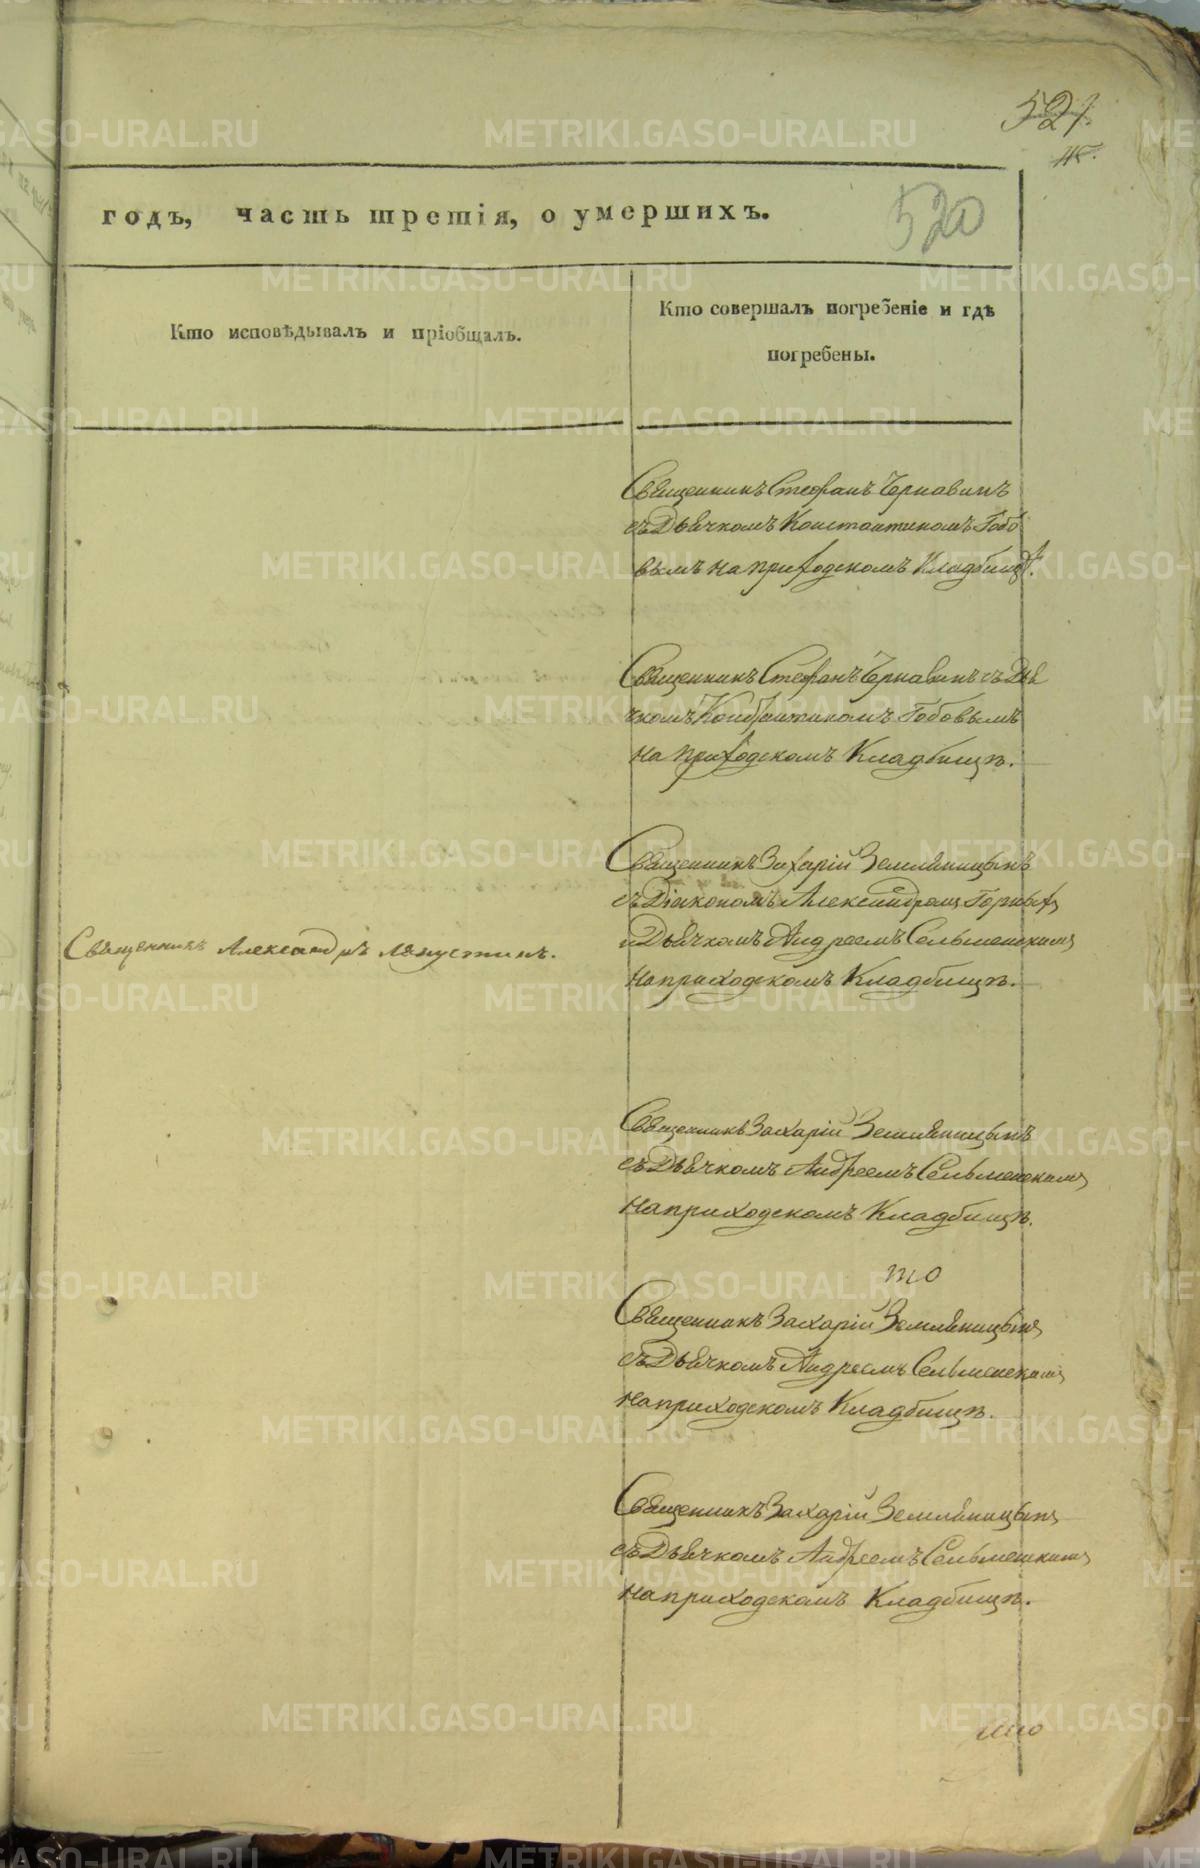 521.
520
годъ, часть третія, о умершихъ.
Кто исповѣдывалъ и пріобщалъ.
Кто совершалъ погребеніе и гдѣ
погребены.
Священникъ Стефанъ Чернавинъ
съ Дьячкомъ Константиномъ Гобо
вымъ на приходскомъ Кладбищѣ.
Священникъ Стефанъ Чернавинъ съ Дья
чкомъ Гобовымъ
на приходскомъ Кладбищѣ.
Священникъ Захарій Земляницынъ
съ Діакономъ Александромъ Горныхъ
и Дьячкомъ Андреемъ Сельменскимъ
на приходскомъ Кладбищѣ.
Священникъ Александръ Ляпустинъ.
Священникъ Захарій Земляницынъ
съ Дьячкомъ Андреемъ Сельменскимъ
на приходскомъ Кладбищѣ.
то
Священникъ Захарій Земляницынъ
съ Дьячкомъ Андреемъ Сельменскимъ
на приходскомъ Кладбищѣ.
Священникъ Захарій Земляницынъ
съ Дьячкомъ Андреемъ Сельменскимъ
на приходскомъ Кладбищѣ.
METRIKI.GASO-URAL.RU